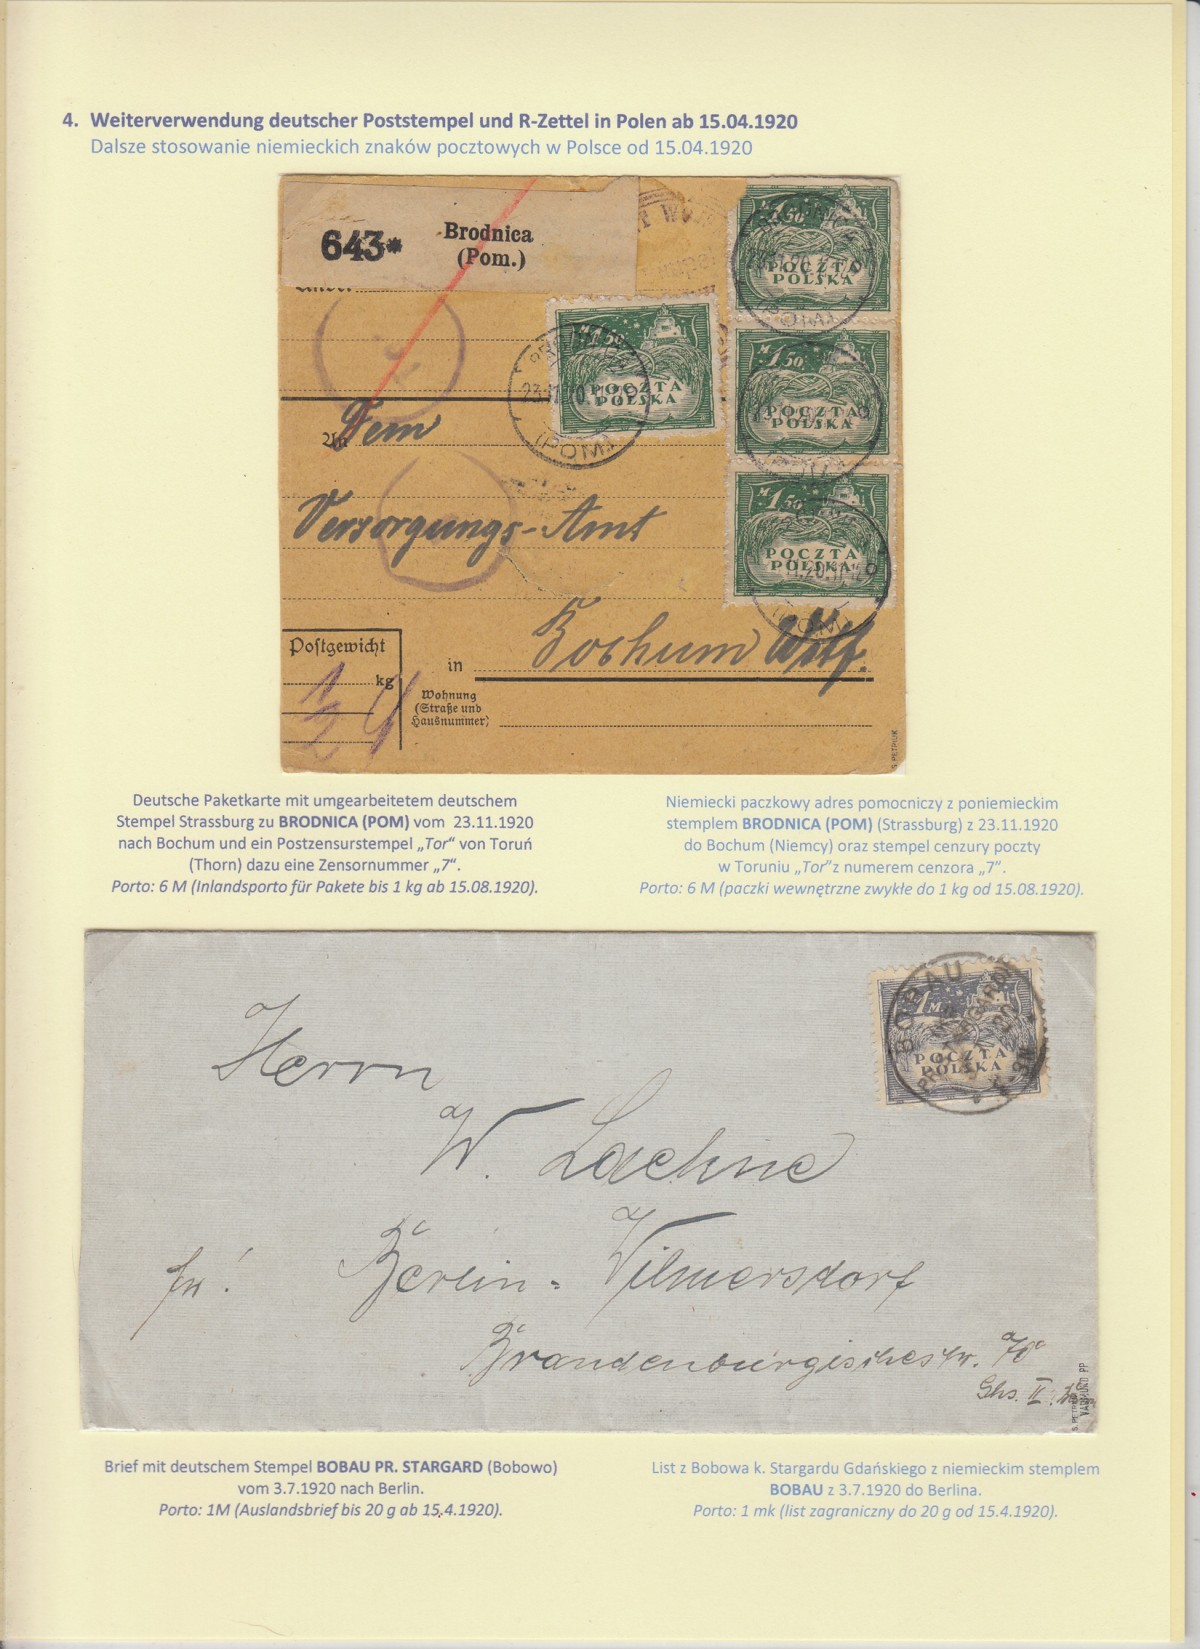 4. Weiterverwendung deutscher Poststempel und R-Zettel in Polen ab 15.04.1920
Dalsze stosowanie niemieckich znaków pocztowych w Polsce od 15.04.1920
643* Brodnica
(Pom.)
M 1,50
POCZTA
POLSKA
M 1,50
POCZTA
POLSKA
(POM)
23.11.20
M 1,50
POCZTA
POLSKA
M 1,50
POCZTA
POLSKA
(POM)
An Dem
Versorgungs-Amt
in Bochum Wstf.
Postgewicht
kg
Wohnung
(Straße und
Hausnummer)
S PETRIUK
Deutsche Paketkarte mit umgearbeitetem deutschem
Stempel Strassburg zu BRODNICA (POM) vom 23.11.1920
nach Bochum und ein Postzensurstempel „Tor“ von Toruń
(Thorn) dazu eine Zensornummer „7“.
Porto: 6 M (Inlandsporto für Pakete bis 1 kg ab 15.08.1920).
Niemiecki paczkowy adres pomocniczy z poniemieckim
stemplem BRODNICA (POM) (Strassburg) z 23.11.1920
do Bochum (Niemcy) oraz stempel cenzury poczty
w Toruniu „Tor”z numerem cenzora „7”.
Porto: 6 M (paczki wewnętrzne zwykłe do 1 kg od 15.08.1920).
BOBAU
1 M
POCZTA
POLSKA
Herrn
W. Lachne
in! Berlin-Wilmersdorf
Brandenburgischestr. 70
Ghs. II.
Brief mit deutschem Stempel BOBAU PR. STARGARD (Bobowo)
vom 3.7.1920 nach Berlin.
Porto: 1M (Auslandsbrief bis 20 g ab 15.4.1920).
List z Bobowa k. Stargardu Gdańskiego z niemieckim stemplem
BOBAU z 3.7.1920 do Berlina.
Porto: 1 mk (list zagraniczny do 20 g od 15.4.1920).